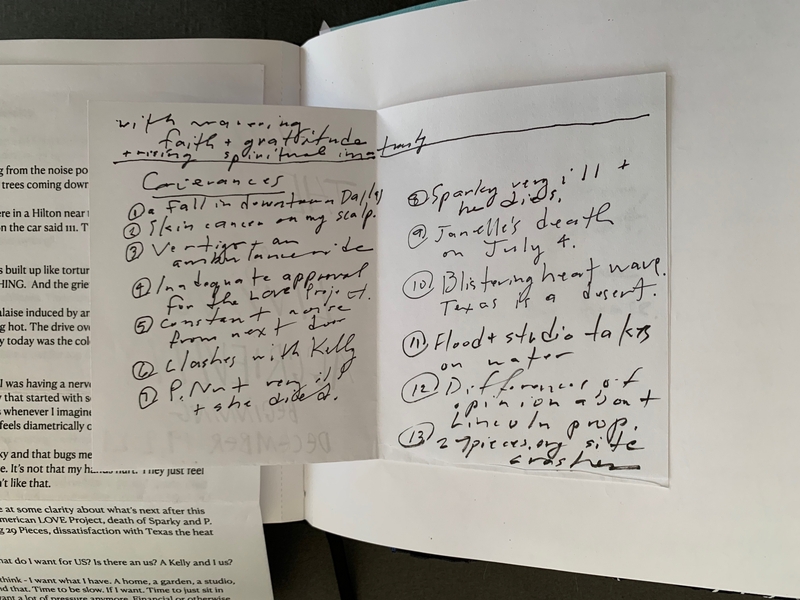 g from the noise po
trees coming down
ere in a Hilton near
n the car said 111. T
s built up like tortur
HING. And the grie
alaise induced by ar
g hot. The drive ov
y today was the col
I was having a nerv
y that started with s
s whenever I imagin
feels diametrically o
ky and that bugs me
e. It's not that my hands hurt. They just feel
n't like that.
e at some clarity about what's next after this
merican LOVE Project, death of Sparky and P.
g 29 Pieces, dissatisfaction with Texas the heat
hat do I want for US? Is there an us? A Kelly and I us?
think - I want what I have. A home, a garden, a studio,
nd that. Time to be slow. If I want. Time to just sit in
want a lot of pressure anymore. Financial or otherwise
with
faith + gratitude
+ rising spiritual
Grievances
① a fall in downtown Dallas
② Skin cancer on my scalp.
③ Vertigo + an
ambulance ride
④ Inadequate approval
for the LOVE Project.
⑤ Constant noise
from next door
⑥ Clashes with Kelly
⑦ P. Nut very ill
+ she died.
⑧ Sparky very ill +
he dies.
⑨ Janelle's death
on July 4.
⑩ Blistering heat wave.
Texas is a desert.
⑪ Flood + studio takes
on water
⑫ Differences of
opinion about
Lincoln prop.
⑬ 29pieces.org site
crashes
BEGINNING
DECEMBER